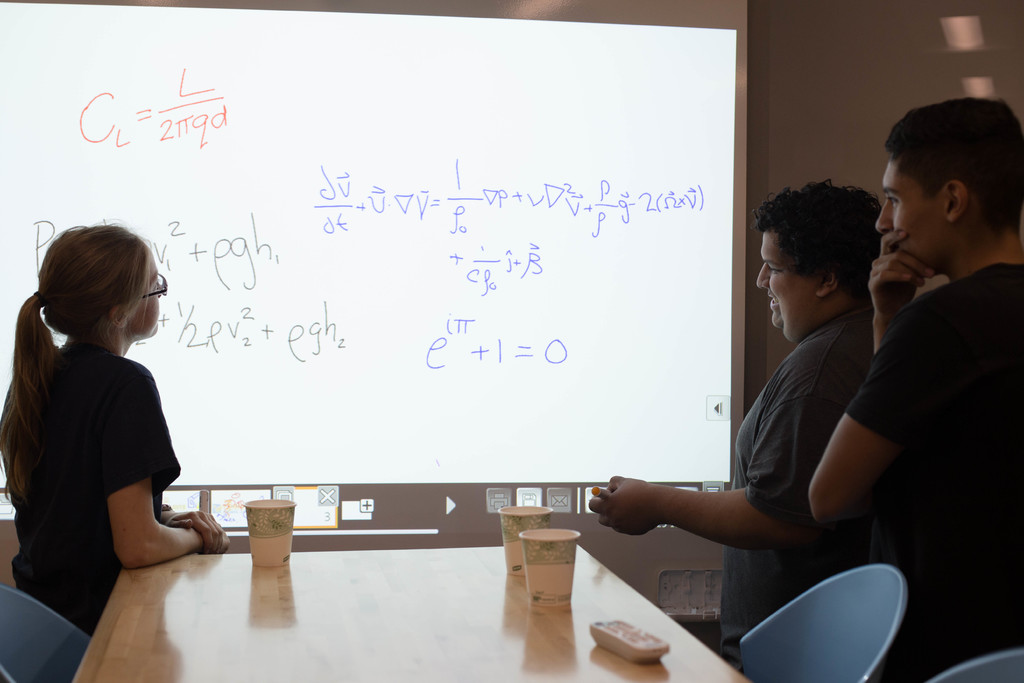 C_L = L/2πqd
∂v⃗/∂t + v⃗·∇v⃗ = 1/ρ₀ ∇p + ν∇²v⃗ + ρ/ρ g⃗ - 2(Ω⃗×v⃗)
+ 1/cρ₀ j + β⃗
P v₁² + ρgh₁
+ 1/2 ρv₂² + ρgh₂
e^{iπ} + 1 = 0
3